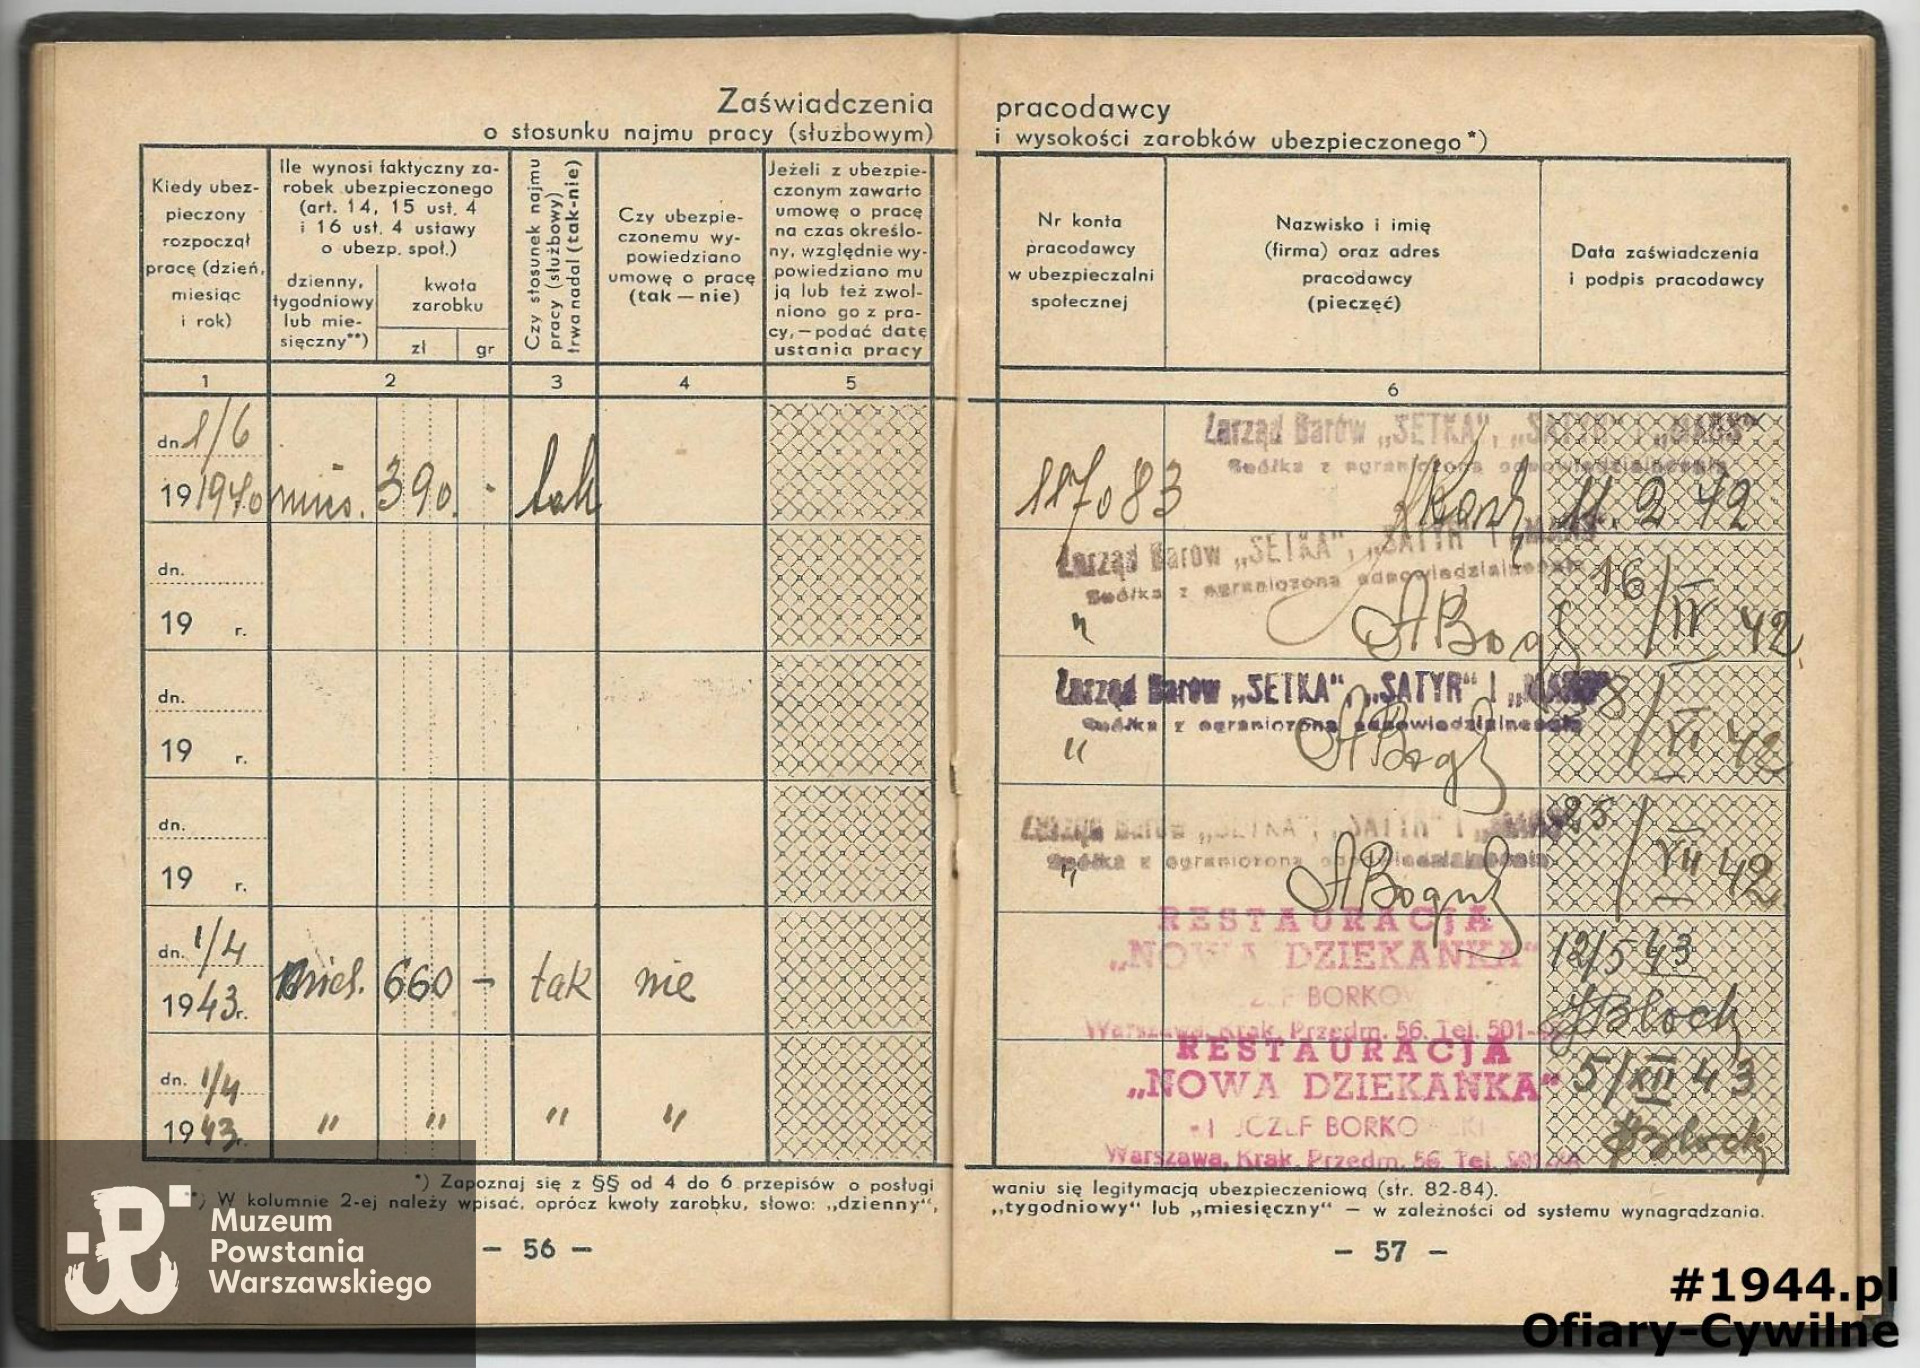 Zaświadczenia
o stosunku najmu pracy (służbowym)
Kiedy ubez-
pieczony
rozpoczął
pracę (dzień,
miesiąc
i rok)
Ile wynosi faktyczny za-
robek ubezpieczonego
(art. 14, 15 ust. 4
i 16 ust. 4 ustawy
o ubezp. społ.)
dzienny,
tygodniowy
lub mie-
sięczny**)
kwota
zarobku
zł gr
Czy stosunek najmu
pracy (służbowy)
trwa nadal (tak-nie)
Czy ubezpie-
czonemu wy-
powiedziano
umowę o pracę
(tak — nie)
Jeżeli z ubezpie-
czonym zawarto
umowę o pracę
na czas określo-
ny, względnie wy-
powiedziano mu
ją lub też zwol-
niono go z pra-
cy,—podać datę
ustania pracy
1 2 3 4 5
dn. 1/6
19 1940 mies. 390. - tak
dn.
19 r.
dn.
19 r.
dn.
19 r.
dn. 1/4
1943r. mies. 660 - tak nie
dn. 1/4
1943r. " " " "
*) Zapoznaj się z §§ od 4 do 6 przepisów o posługi
**) W kolumnie 2-ej należy wpisać, oprócz kwoty zarobku, słowo: „dzienny",
— 56 —
pracodawcy
i wysokości zarobków ubezpieczonego*)
Nr konta
pracodawcy
w ubezpieczalni
społecznej
Nazwisko i imię
(firma) oraz adres
pracodawcy
(pieczęć)
Data zaświadczenia
i podpis pracodawcy
6
Zarząd Barów „SETKA", „SATYR" i „MARS"
Spółka z ograniczoną odpowiedzialnością
117083 11. 2 42
Zarząd Barów „SETKA", „SATYR" i „MARS"
Spółka z ograniczoną odpowiedzialnością
" 16/IV 42
Zarząd Barów „SETKA", „SATYR" i „MARS"
Spółka z ograniczoną odpowiedzialnością
" 8/VI 42
Zarząd Barów „SETKA", „SATYR" i „MARS"
Spółka z ograniczoną odpowiedzialnością
" 25/VII 42
RESTAURACJA
„NOWA DZIEKANKA" 12/5 43
BORKO
Warszawa, Krak. Przedm. 56. Tel. 501- JBloch
RESTAURACJA
„NOWA DZIEKANKA" 5/XII 43
JÓZEF BORKO
Warszawa, Krak. Przedm. 56 Tel. JBloch
waniu się legitymacją ubezpieczeniową (str. 82-84).
„tygodniowy" lub „miesięczny" — w zależności od systemu wynagradzania.
— 57 —
Muzeum
Powstania
Warszawskiego
#1944.pl
Ofiary-Cywilne